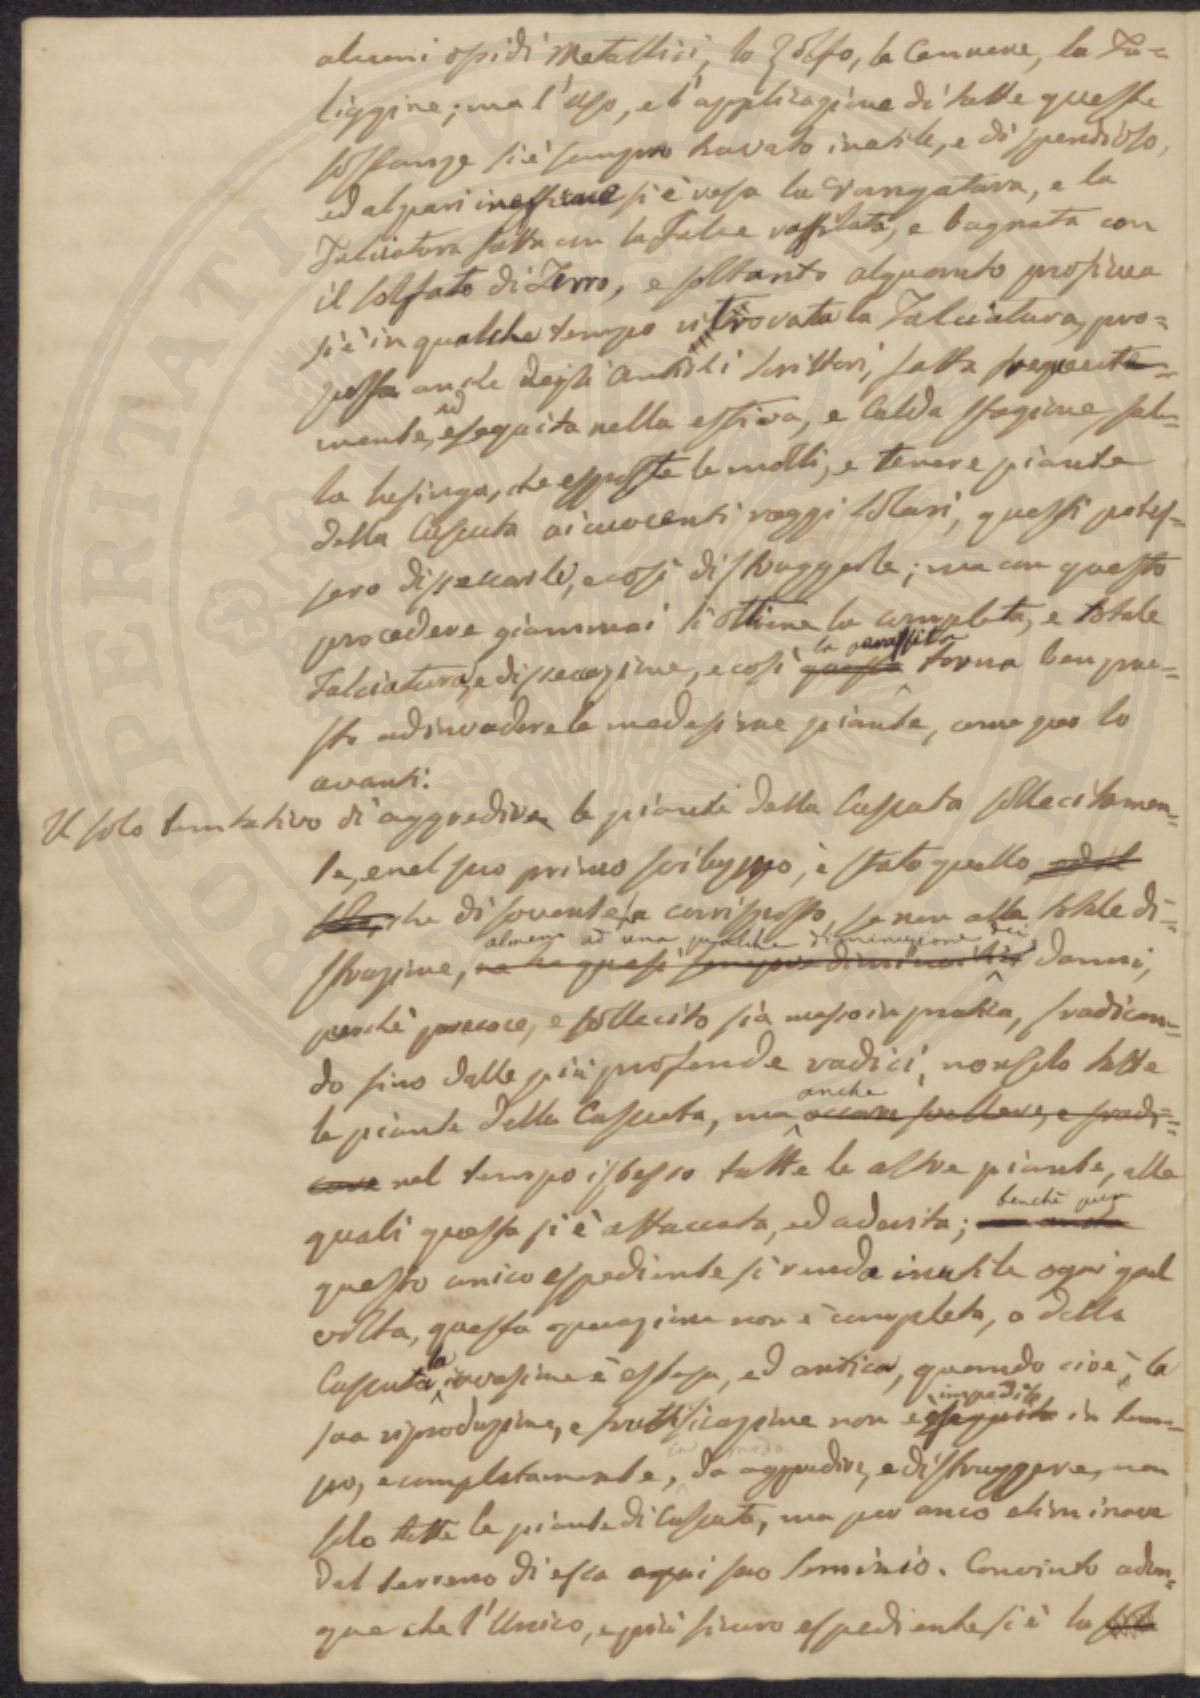 alcuni ossidi Metallici, lo Zolfo, la Cennere, la Fu=
liggine; ma l'uso, e l'applicazione di tutte queste
sostanze si è sempre trovato inutile, e dispendioso,
ed al pari inefficace si è resa la Vangatura, e la
Falciatura fatta con la Falce affilata, e bagnata con
il Solfato di Ferro, e soltanto alquanto proficua
si è in qualche tempo ritrovata la Falciatura, pro=
posta anche dagli Antichi Scrittori, fatta frequente=
mente, ed eseguita nella estiva, e calda stagione, sul=
la lusinga, che esposte le molli, e tenere piante
della Cuscuta ai cuocenti raggi Solari, questi potes=
sero disseccarle, e così distruggerle; ma con questo
procedere giammai si ottiene la completa, e totale
Falciatura, e dissecazione, e così questa la parassita torna ben pre=
sto ad invadere le medesime piante, come per lo
avanti.
Il solo tentativo di aggredire le piante della Cuscuta sollecitamen=
te, e nel suo primo sviluppo, è stato quello, ed il
solo, che di sovente ha corrisposto, se non alla totale di=
struzione, almeno ad una qualche diminuzione dei danni,
perchè precoce, e sollecito sia messo in pratica, sradican=
do sino dalle più profonde radici, non solo tutte
le piante della Cuscuta, ma anche occorre svellere, e sradi=
care nel tempo istesso tutte le altre piante, alle
quali questa si è attaccata, ed aderita; benchè pur
questo unico espediente si renda inutile ogni qual
volta, questa operazione non è completa, o della
Cuscuta la invasione è estesa, ed antica, quando cioè, la
sua riproduzione, e fruttificazione non è eseguita impedita in tem=
po, e completamente, in modo da aggredire, e distruggere, non
solo tutte le piante di Cuscuta, ma per anco eliminare
dal terreno di essa ogni suo Seminio. Convinto adun=
que che l'Unico, e più sicuro espediente si è la